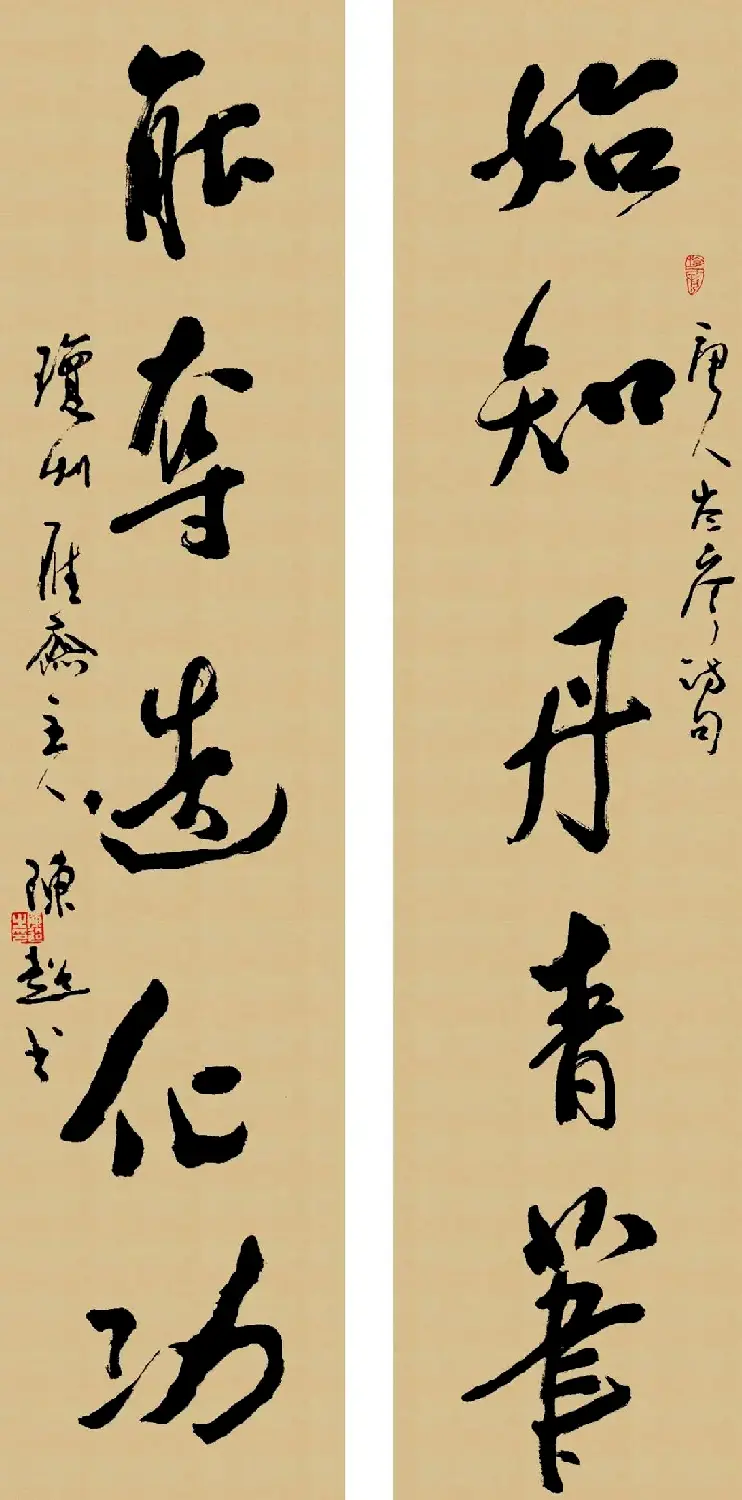 始知丹青筆
唐人岑參詩句
能奪造化功
瓊州雁齋主人陳超書